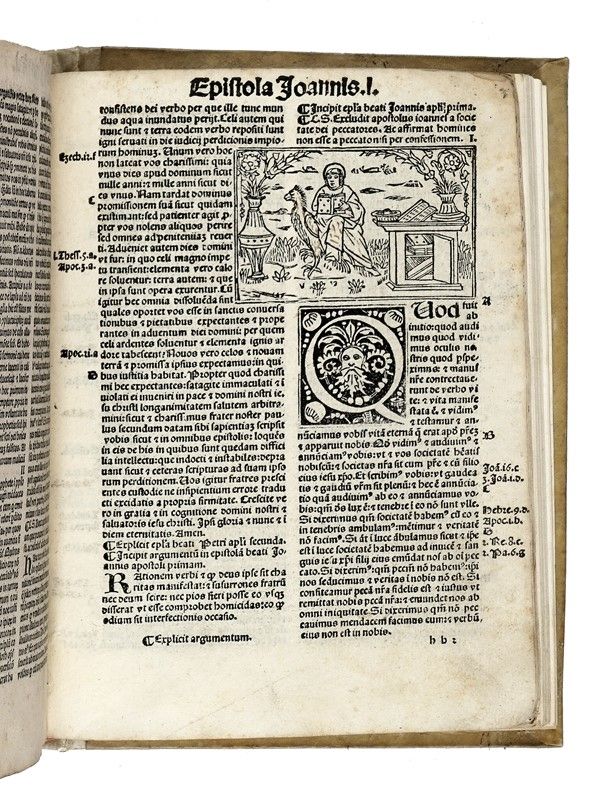 Epistola Joannis.I.
consistens dei verbo per que ille tunc mun
dus aqua inundatus perijt. Celi autem qui
nunc sunt ⁊ terra eodem verbo repositi sunt
igni seruati in die iudicij ⁊ perditionis impio
rum hominuꝫ. Unum vero hoc
non lateat vos charissimi: quia
vnus dies apud dominum sicut
mille anni: ⁊ mille anni sicut di-
es vnus. Nam tardat dominus
promissionem suā sicut quidam
existimant: sed patienter agit ꝓ-
pter vos nolens aliquos perire
sed omnes ad penitentiaꝫ reuer
ti. Adueniet autem dies domini
vt fur: in quo celi magno impe
tu transient: elementa vero calo
re soluentur: terra autem: ⁊ que
in ipsa sunt opera exurentur. Cū
igitur hec omnia dissoluēda sint
quales oportet vos esse in sanctis conuersa
tionibus ⁊ pietatibus expectantes ⁊ prope
rantes in aduentum diei domini: per quem
celi ardentes soluentur ⁊ elementa ignis ar
dore tabescent: Nouos vero celos ⁊ nouam
terrā ⁊ promissa ipsius expectamus: in qui
bus iustitia habitat. Propter quod charissi
mi hec expectantes: satagite immaculati ⁊ in
uiolati ei inueniri in pace ⁊ domini nostri ie
su christi longanimitatem salutem arbitra
mini: sicut ⁊ chariss. mus frater noster pau
lus secundum datam sibi sapientiaꝫ scripsit
vobis sicut ⁊ in omnibus epistolis: loquēs
in eis de his in quibus sunt quedam diffici
lia intellectu: que indocti ⁊ instabiles deprā
uant sicut ⁊ ceteras scripturas ad suam ipso
rum perditionem. Uos igitur fratres presci
entes custodite ne insipientium errore tradu
cti excidatis a propria firmitate. Crescite ve
ro in gratia ⁊ in cognitione domini nostri ⁊
saluatoris iesu christi. Ipsi gloria ⁊ nunc ⁊ ī
diem eternitatis. Amen.
Explicit epl̄a beati Petri apl̄i secunda.
Incipit argumentū in epistolā beati Jo
annis apostoli primam.
RAtionem verbi ⁊ ꝙ deus ipse sit cha
ritas manifestat: ⁊ susurrones fratrū
nec deum scire: nec pios fieri posse eo vsqꝫ
disserat vt esse comprobet homicidas: eo ꝙ
odium sit interfectionis occasio.
Explicit argumentum.
Ezech.ii.f
C
i.Thess.5.a.
Apoc.3.a.
Apoc.21.a
D
Incipit epl̄a beati Joannis apl̄i prima.
C.S. Excludit apostolus ioannes a socie
tate dei peccatores. Ac affirmat homines
non esse a peccato nisi per confessionem. I.
QUod fuit
ab
initio: quod audi
uimus quod vidi-
mus oculis no
stris quod pspe-
ximus: ⁊ manus
nr̄e contrectaue-
runt de verbo vi
te: ⁊ vita manife
stata ē. ⁊ vidim⁹
⁊ testamur ⁊ an-
nūciamus vobis vitā eternā q̄ erat apd̄ pr̄eꝫ
⁊ apparuit nobis. Quod vidim⁹ ⁊ audiuim⁹ ⁊
annūciam⁹ vobis: vt ⁊ vos societatē hēatis
nobiscū: ⁊ societas nr̄a sit cum pr̄e ⁊ cū filio
eius iesu xp̄o. Et scribim⁹ vobis: vt gaudea
tis ⁊ gaudiū vr̄m sit plenū: ⁊ hec ē annūcia
tio quā audiuim⁹ ab eo ⁊ annūciamus vo-
bis: qm̄ de⁹ lux ē: ⁊ tenebre ī eo nō sunt vlle.
Si dixerimus qm̄ societatē habem⁹ cū eo ⁊
in tenebris ambulam⁹: mētimur ⁊ veritatē
nō facim⁹. Si āt ī luce ābulamus sicut ⁊ ip̄e
est ī luce societatē habemus ad inuicē ⁊ san
guis iesu xp̄i filij eius emūdat nos ab oī pec
cato. Si dixerim⁹: qm̄ peccm̄ nō habem⁹: ip̄i
nos seducimus ⁊ veritas ī nobis nō est. Si
confiteamur peccā nr̄a fidelis est ⁊ iustus vt
remittat nobis peccā nr̄a: ⁊ emundet nos ab
omni iniquitate. Si dixerimus qm̄ nō pec
cauimus mendacem facimus eum: ⁊ verbū
eius non est in nobis.
h b 2
A
B
Joā.16.e
3.Joā.1.d.
C
Hebre.9.d.
Apoc.1.b.
D
2.Re.8.e.
2.Pa.6.g